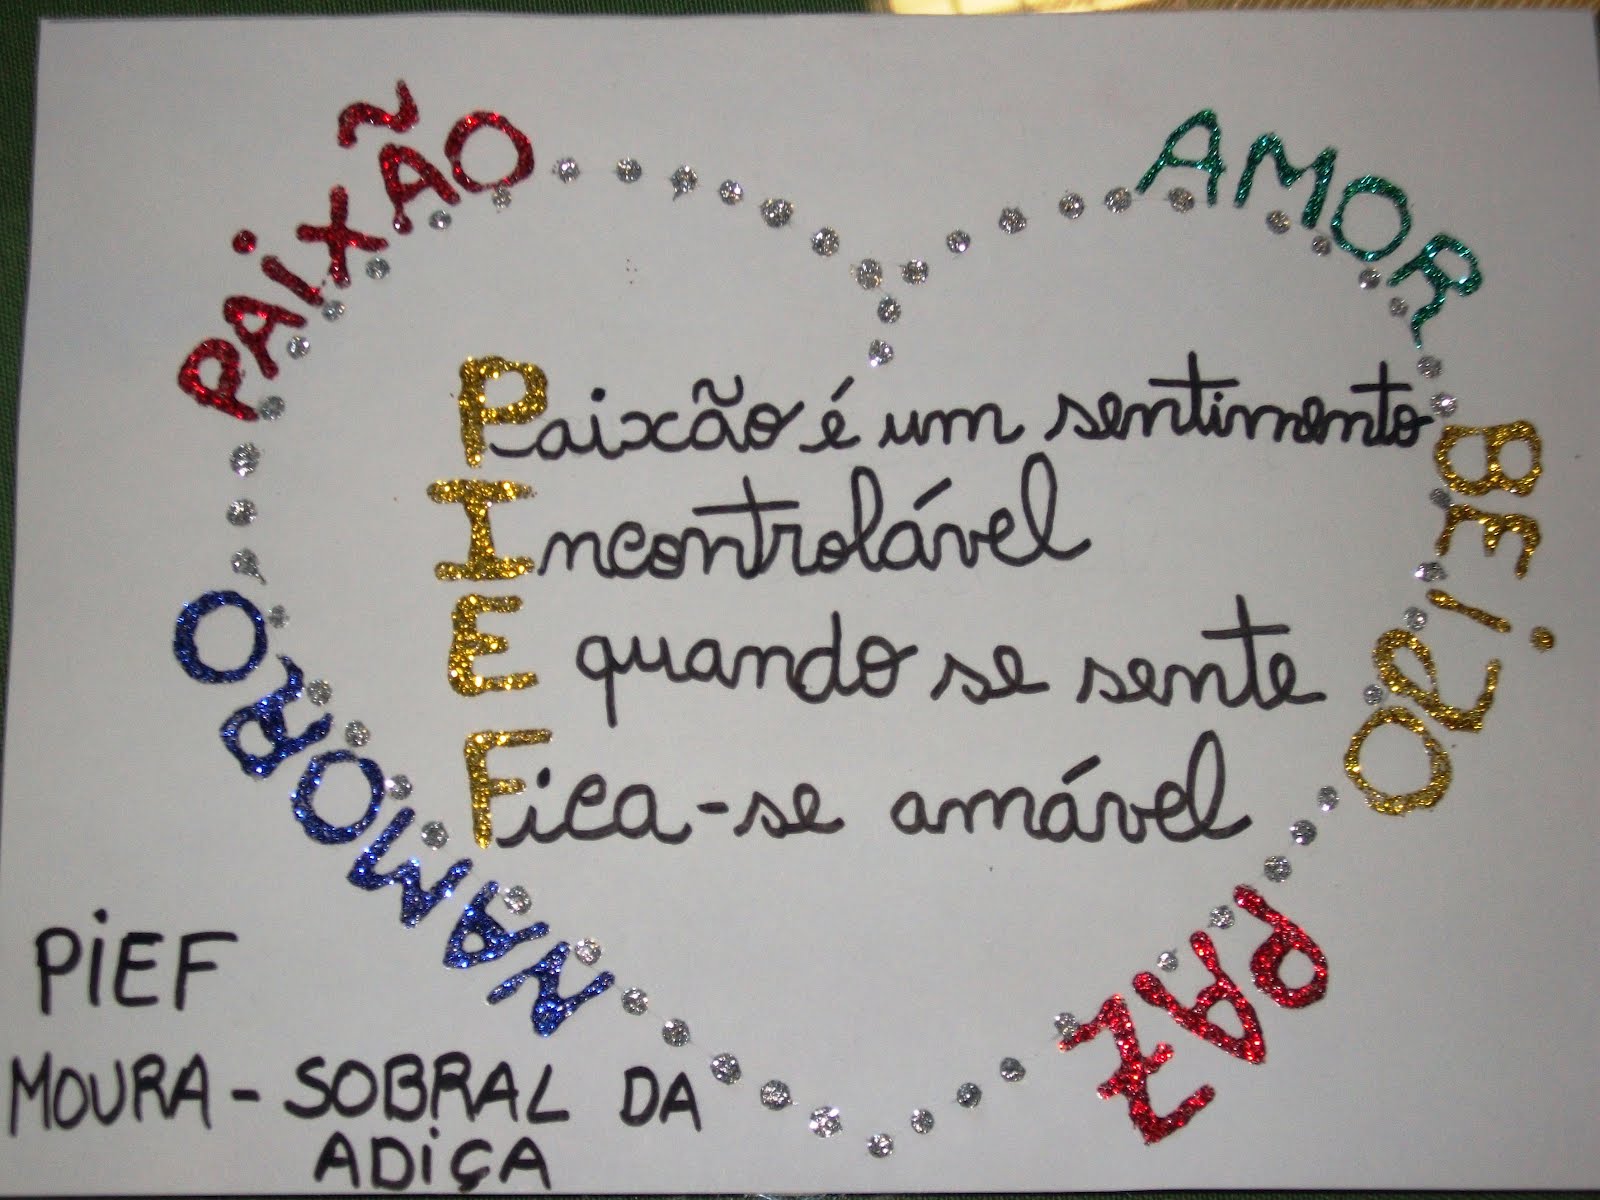 PAIXÃO
AMOR
BEIJO
PAZ
NAMORO
Paixão é um sentimento
Incontrolável
E quando se sente
Fica-se amável
PIEF
MOURA - SOBRAL DA
ADIÇA